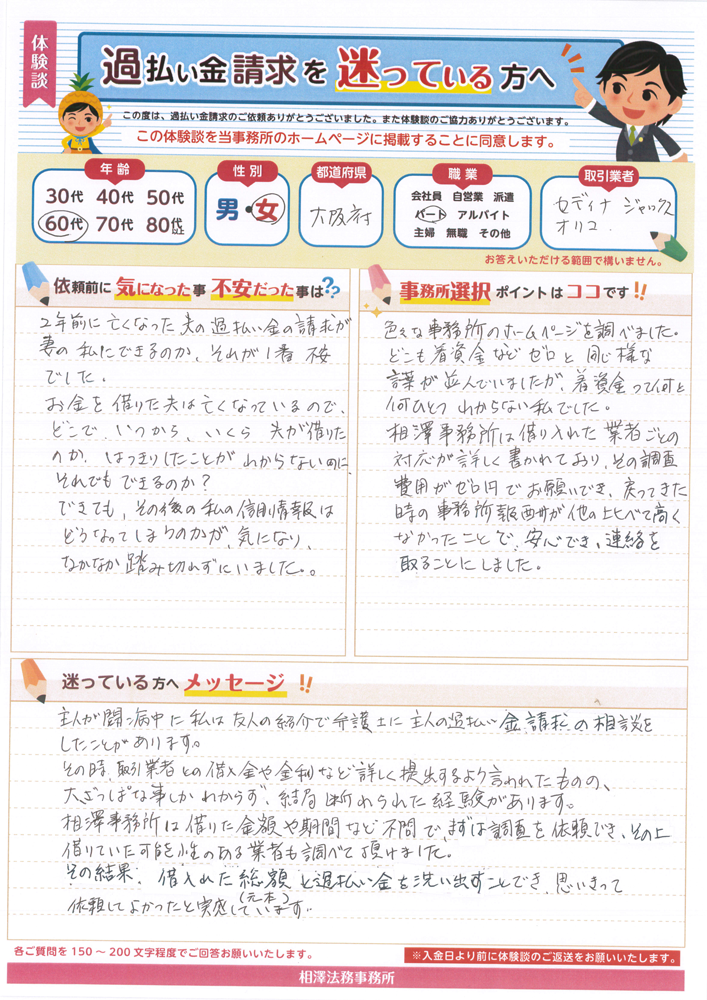 体験談
過払い金請求を迷っている方へ
この度は、過払い金請求のご依頼ありがとうございました。また体験談のご協力ありがとうございます。
この体験談を当事務所のホームページに掲載することに同意します。
年齢
30代 40代 50代
60代 70代 80代以上
性別
男・女
都道府県
大阪府
職業
会社員 自営業 派遣
パート アルバイト
主婦 無職 その他
取引業者
女ディナ ジャックス
オリコ
お答えいただける範囲で構いません。
依頼前に気になった事 不安だった事は??
2年前に亡くなった夫の過払い金の請求が
妻の私にできるのか、それが1番不安
でした。
お金を借りた夫は亡くなっているので、
どこで、いつから、いくら 夫が借りた
のか、はっきりしたことがわからないのに、
それでもできるのか?
できても、その後の私の信用情報は
どうなってしまうのかが、気になり、
なかなか踏み切れずにいました。。
事務所選択ポイントはココです!!
色々な事務所のホームページを調べました。
どこも着資金などゼロと同じ様な
言葉が並んでいましたが、着資金って何と
何ひとつわからない私でした。
相澤事務所は借り入れた業者ごとの
対応が詳しく書かれており、その調査
費用がゼロ円でお願いでき、戻ってきた
時の事務所報酬が他の比べて高く
なかったことで、安心でき、連絡を
取ることにしました。
迷っている方へメッセージ!!
主人が闘病中に私は友人の紹介で弁護士に主人の過払い金請求の相談を
したことがあります。
その時、取引業者との借入金や金利など詳しく提出するよう言われたものの、
大ざっぱな事しかわからず、結局断わられた経験があります。
相澤事務所は借りた金額や期間など不問で、まずは調査を依頼でき、その上
借りていた可能性のある業者も調べて頂けました。
その結果、借入れた総額と過払い金を洗い出すことでき、思いきって
(元本)
依頼してよかったと実感しています。
各ご質問を150～200文字程度でご回答お願いいたします。
※入金日より前に体験談のご返送をお願いいたします。
相澤法務事務所